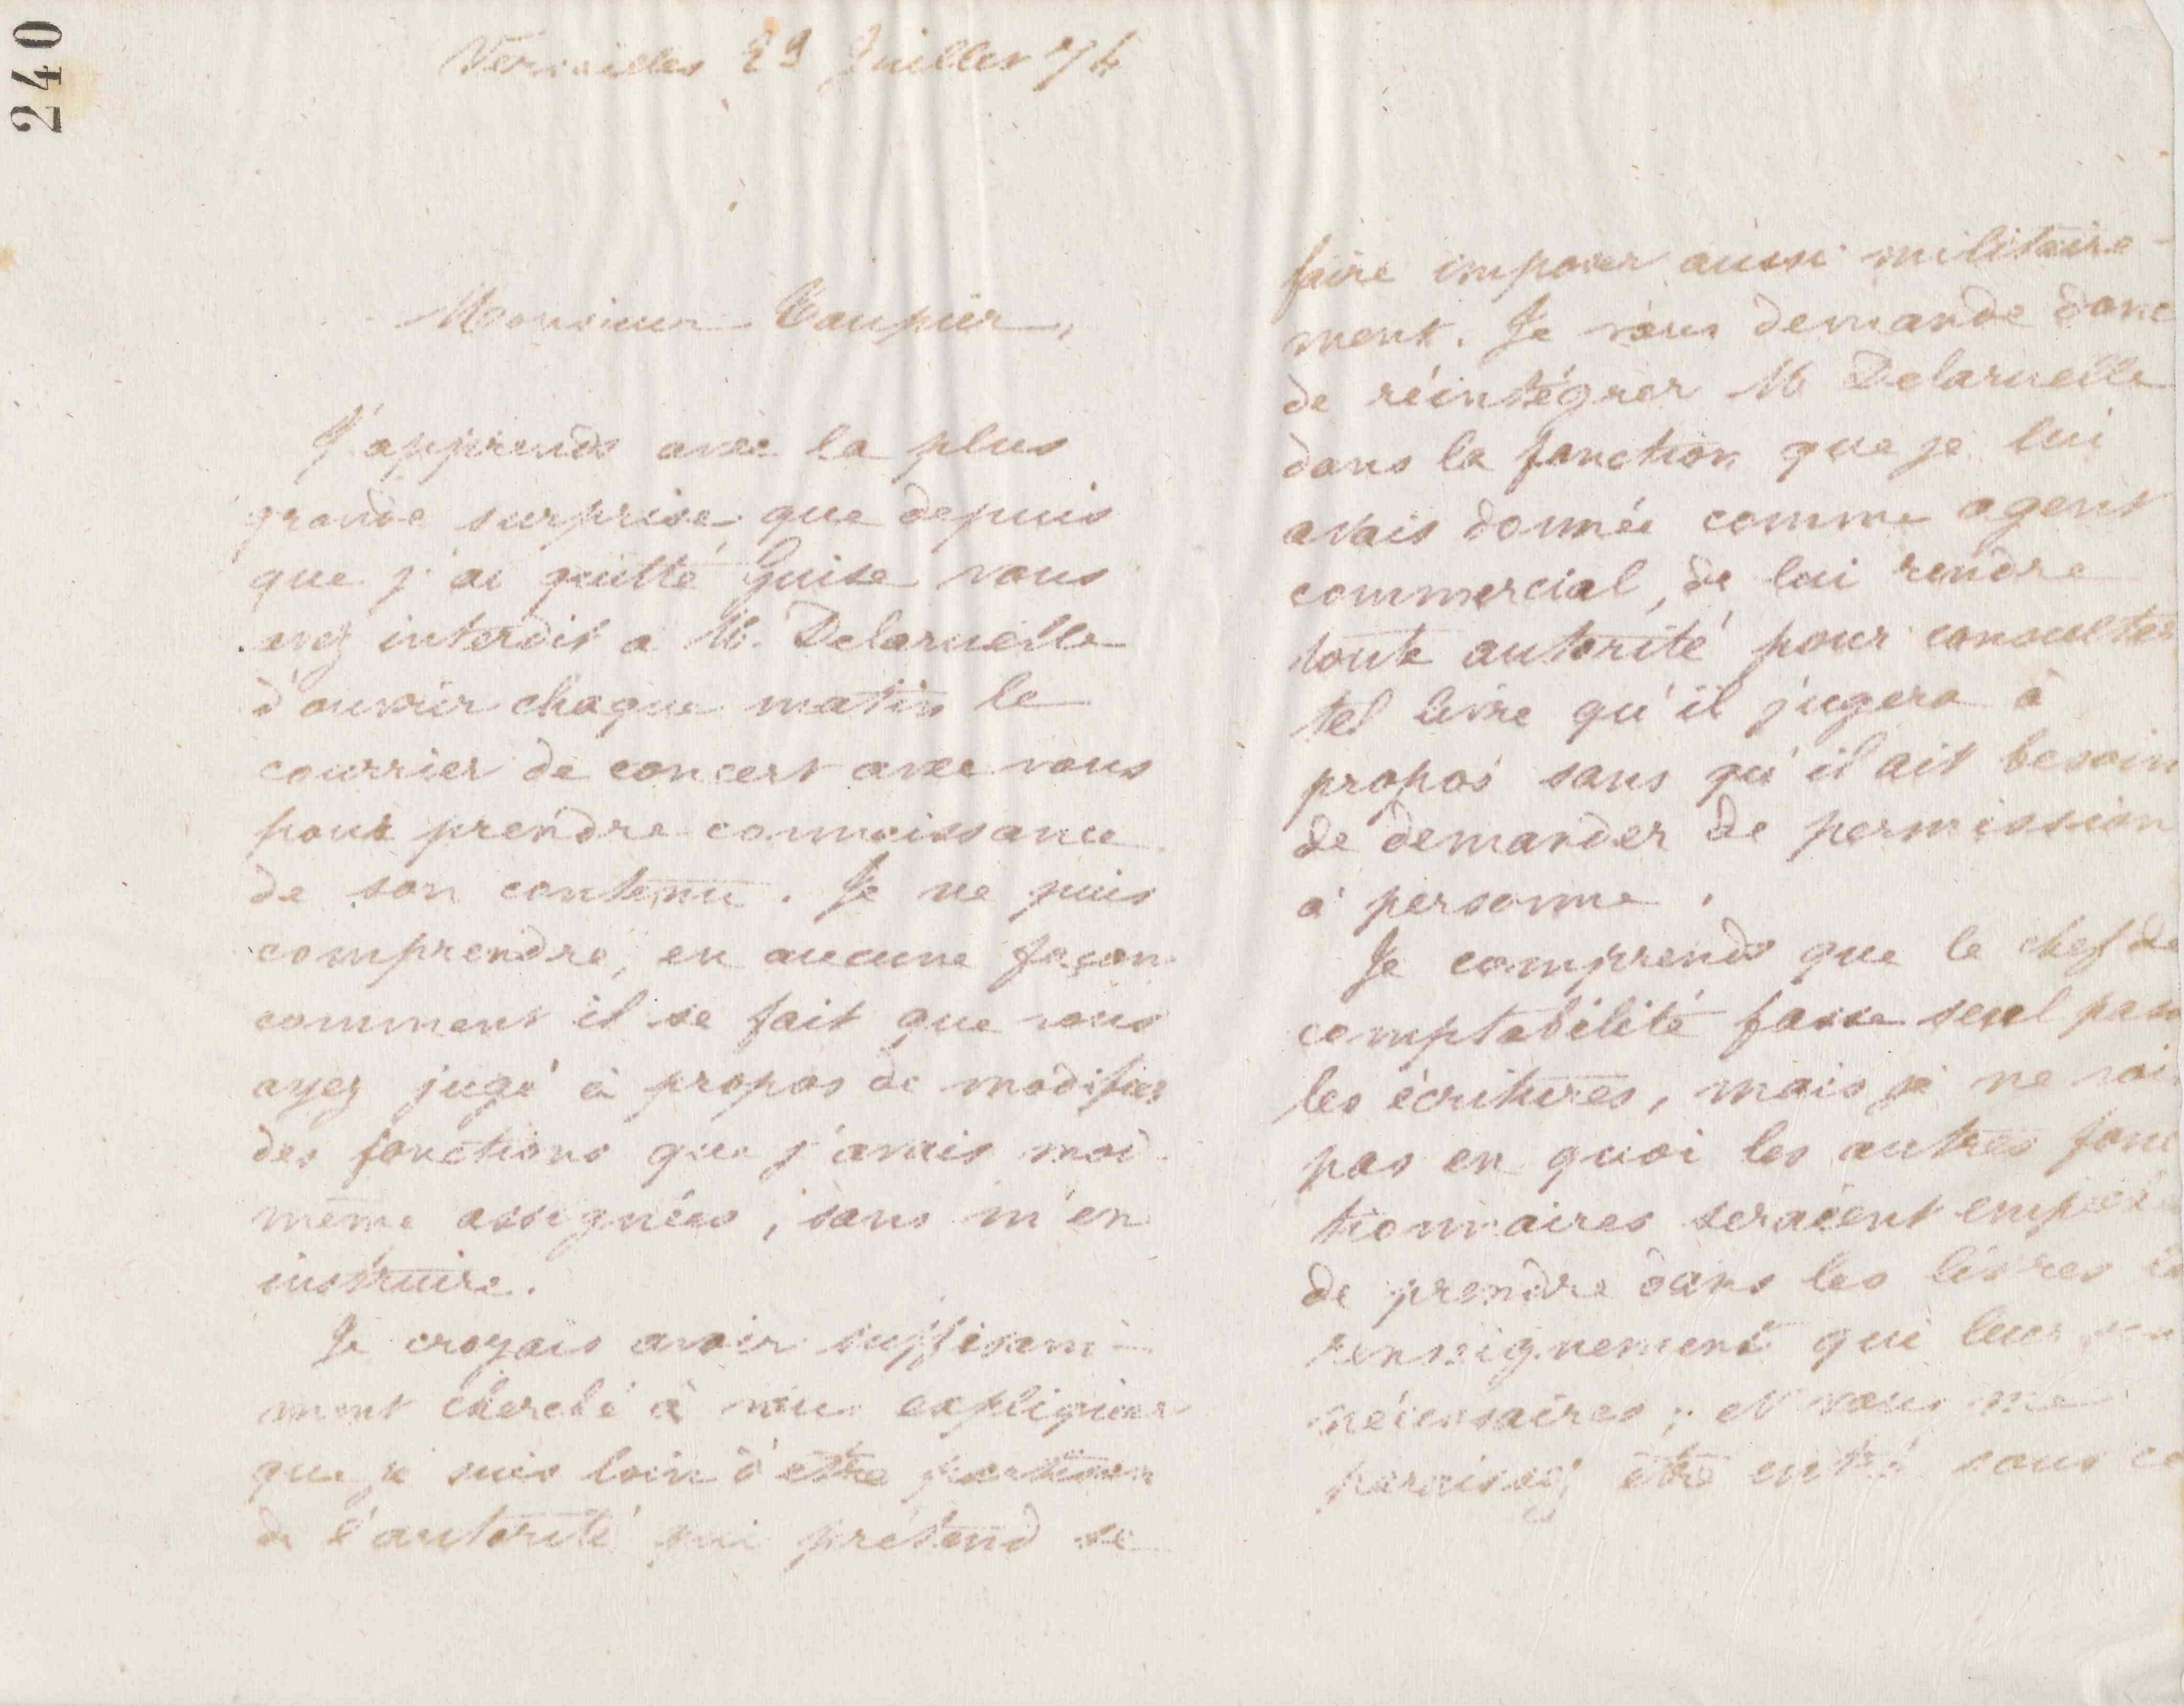 240
Versailles 29 Juillet 74
Monsieur
J'apprends avec la plus
grande surprise que depuis
que j'ai quitté Guise vous
avez interdit a M. Delaruelle
d'ouvrir chaque matin le
courrier de concert avec vous
pour prendre connaissance
de son contenu. Je ne puis
comprendre, en aucune façon
comment il se fait que vous
ayez jugé à propos de modifier
des fonctions que j'avais moi
même assignées, sans m'en
instruire.
Je croyais avoir suffisam-
ment cherché à vous expliquer
que je suis loin d'être partisan
de l'autorité qui prétend se
faire imposer aussi militaire-
ment. Je vous demande donc
de réintégrer M Delaruelle
dans la fonction que je lui
avais donnée comme agent
commercial, de lui rendre
toute autorité pour consulter
tel livre qu'il jugera à
propos sans qu'il ait besoin
de demander de permission
à personne.
Je comprends que le chef de
comptabilité fasse seul pass
les écritures, mais je ne voi
pas en quoi les autres fonc
tionnaires seraient empêc
de prendre dans les livres
renseignements qui leur
nécessaires ; et vous me
paraissez être entré sous ce